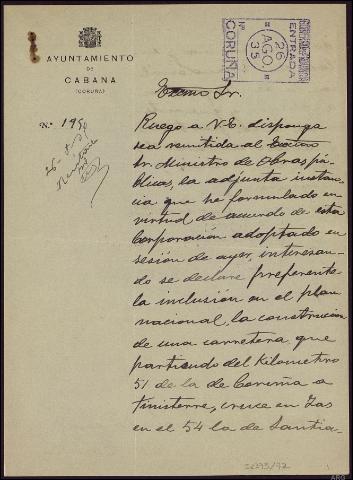 AYUNTAMIENTO
DE
CABANA
(CORUÑA)
ENTRADA
26
AGO.
35
Nº
CORUÑA
Nº. 1950
Excmo Sr.
Ruego a V.E. disponga
sea remitida al Excmo
Sr. Ministro de Obras pú-
blicas, la adjunta instan-
cia que he formulado en
virtud de acuerdo de esta
Corporación adoptado en
sesión de ayer, interesan-
do se declare preferente
la inclusión en el plan
nacional, la construcción
de una carretera que
partiendo del Kilometro
51 de la de Coruña a
Finisterre, cruce en Zas
en el 54 la de Santia-
ARG